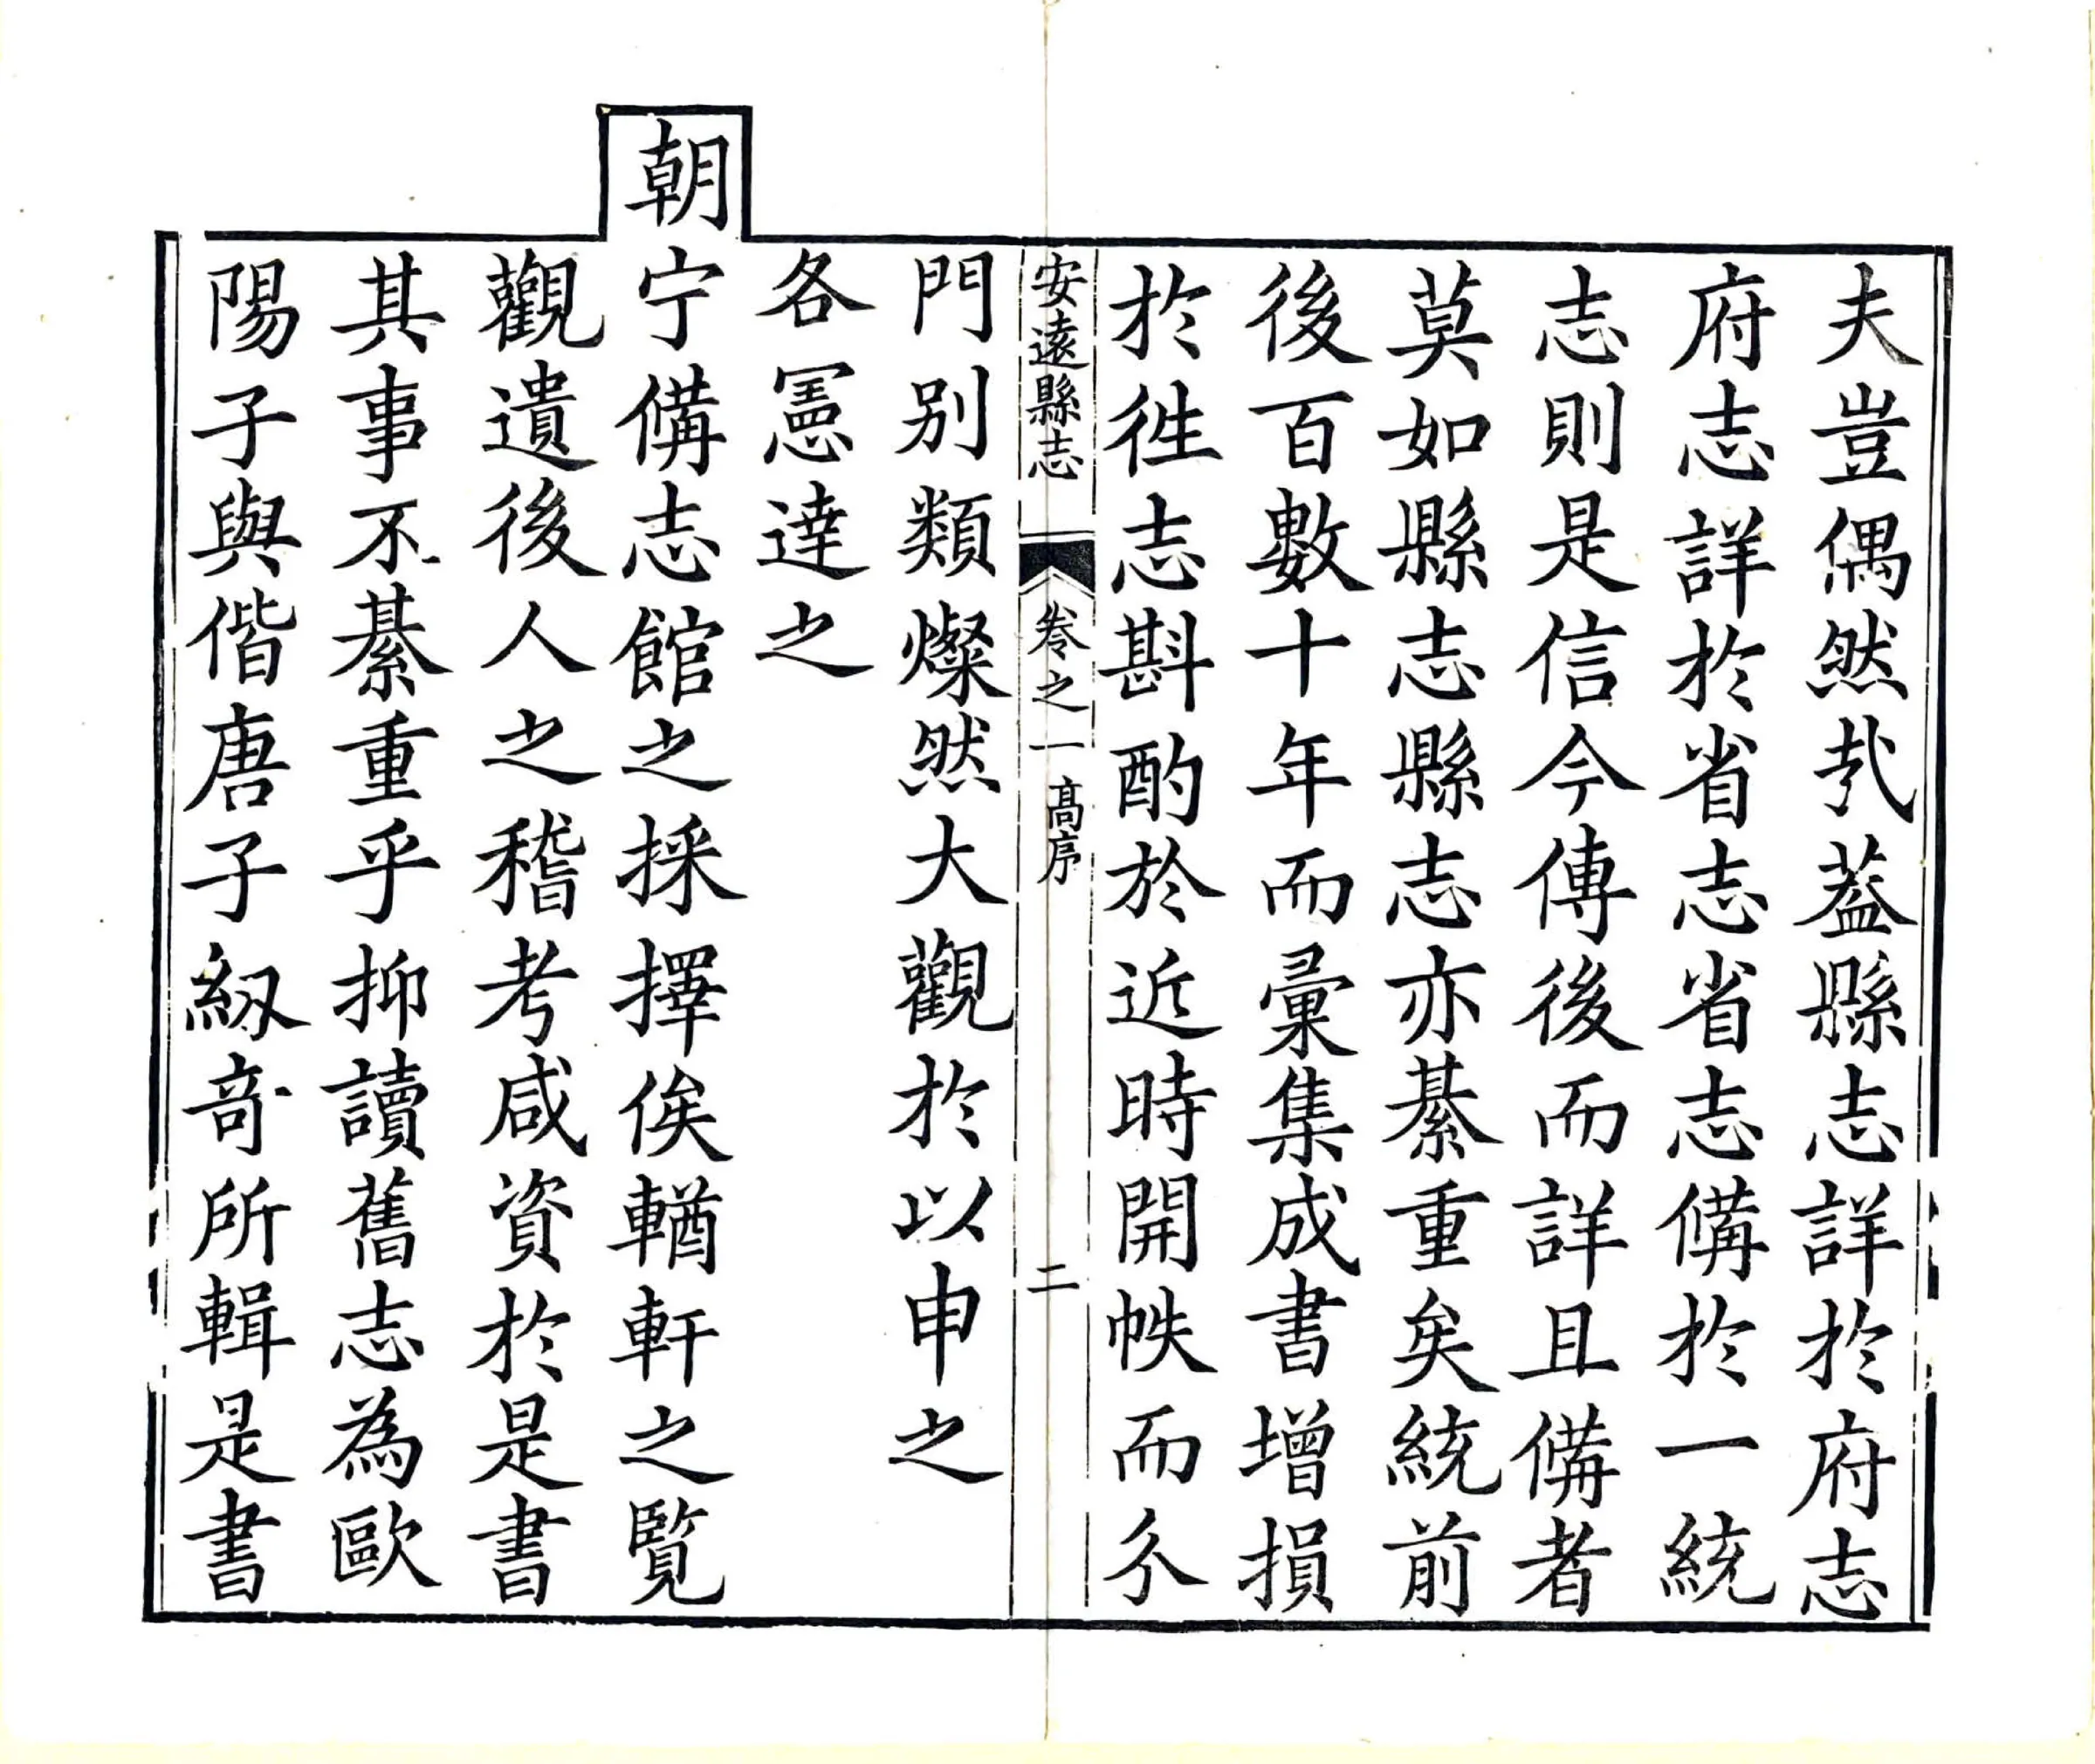 夫豈偶然㢤葢縣志詳於府志
府志詳於省志省志俻於一統
志則是信今傳後而詳且俻者
莫如縣志縣志亦綦重矣統前
後百數十年而彙集成書增損
於徃志斟酌於近時開帙而分
安遠縣志 卷之一 高序 二
門别類燦然大觀於以申之
各憲達之
朝宁俻志館之採擇俟輶軒之覽
觀遺後人之稽考咸資於是書
其事不綦重乎抑讀舊志為歐
陽子與偕唐子紉竒所輯是書